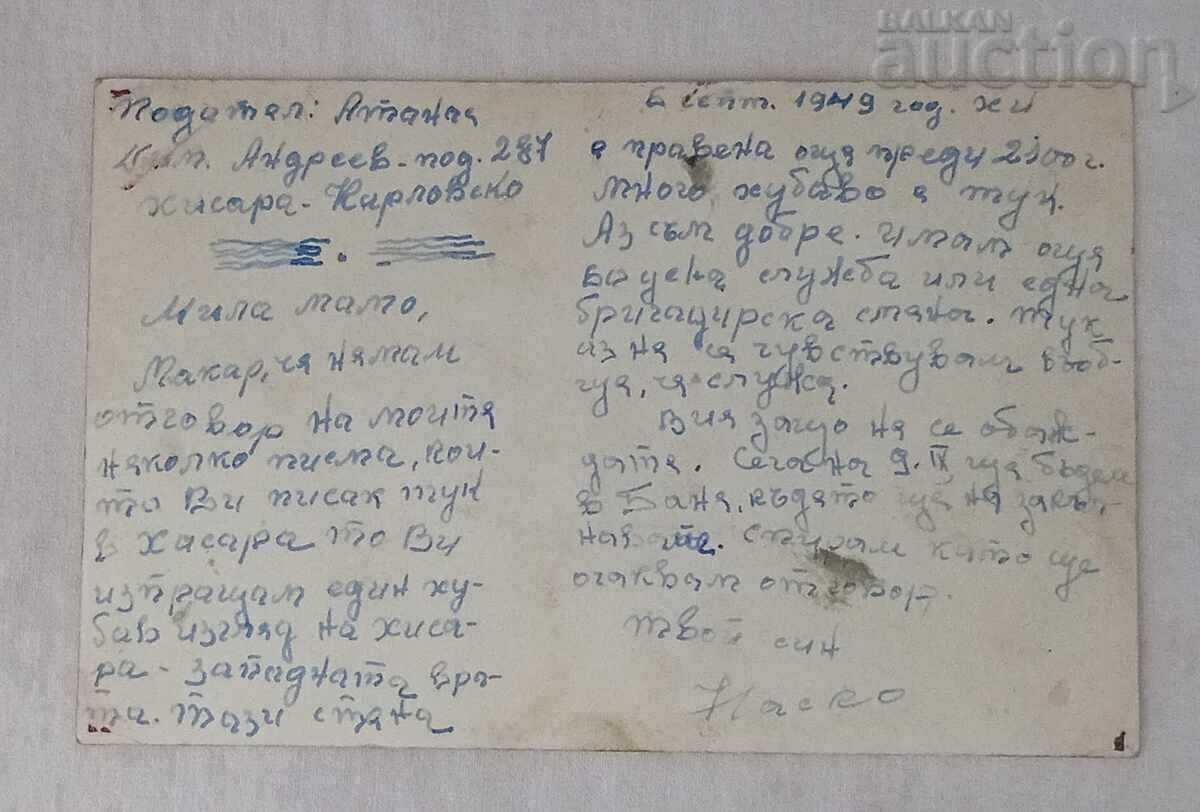 BALKAN
auction
Подател: Атанас
Андреев - под. 287
Хисара - Карловско
Мила мамо,
Макар, че нямам
отговор на моите
няколко писма, кои-
то Ви писах тук
в Хисара то Ви
изпращам един ху-
бав изглед на Хиса-
ра - западната вра-
та. Тази стена
6 септ. 1949 год. Хи
е правена още преди 2300 г.
Много хубаво е тук.
Аз съм добре. Имам още
служба или една
бригадирска смяна. Тук
аз не се чувствувам въоб-
ще, че служа.
Вие защо не се обаж-
дате. Сега на 9.IX ще бъдем
в Баня, където ще
Спирам като ще
очаквам отговор.
Твой син
Наско